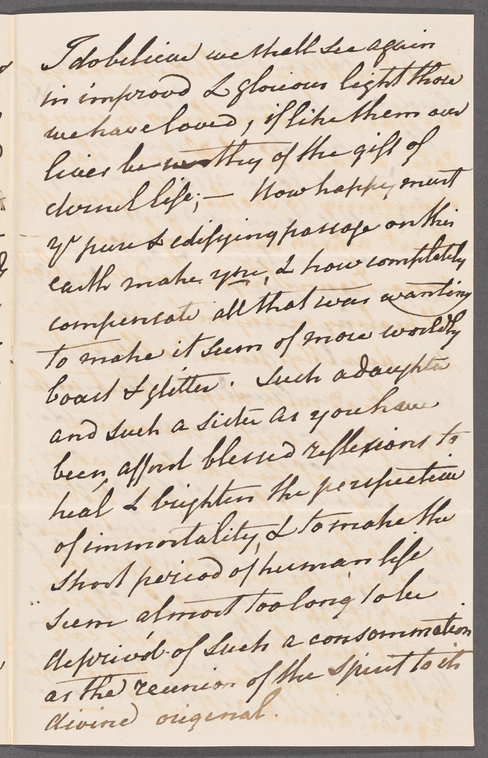 I do believe we shall see again
in improved & glorious light those
we have loved, if like them our
lives be worthy of the gift of
eternal life; — How happy must
yr pure & edifying passage on this
earth make you, & how completely
compensate all that was wanting
to make it seem of more worldly
boast & glitter. Such a daughter
and such a sister as you have
been, afford blessed reflexions to
heal & brighten the perspective
of immortality, & to make the
short period of human life
seem almost too long to be
depriv'd of such a consommation
as the reunion of the Spirit to its
divine original.